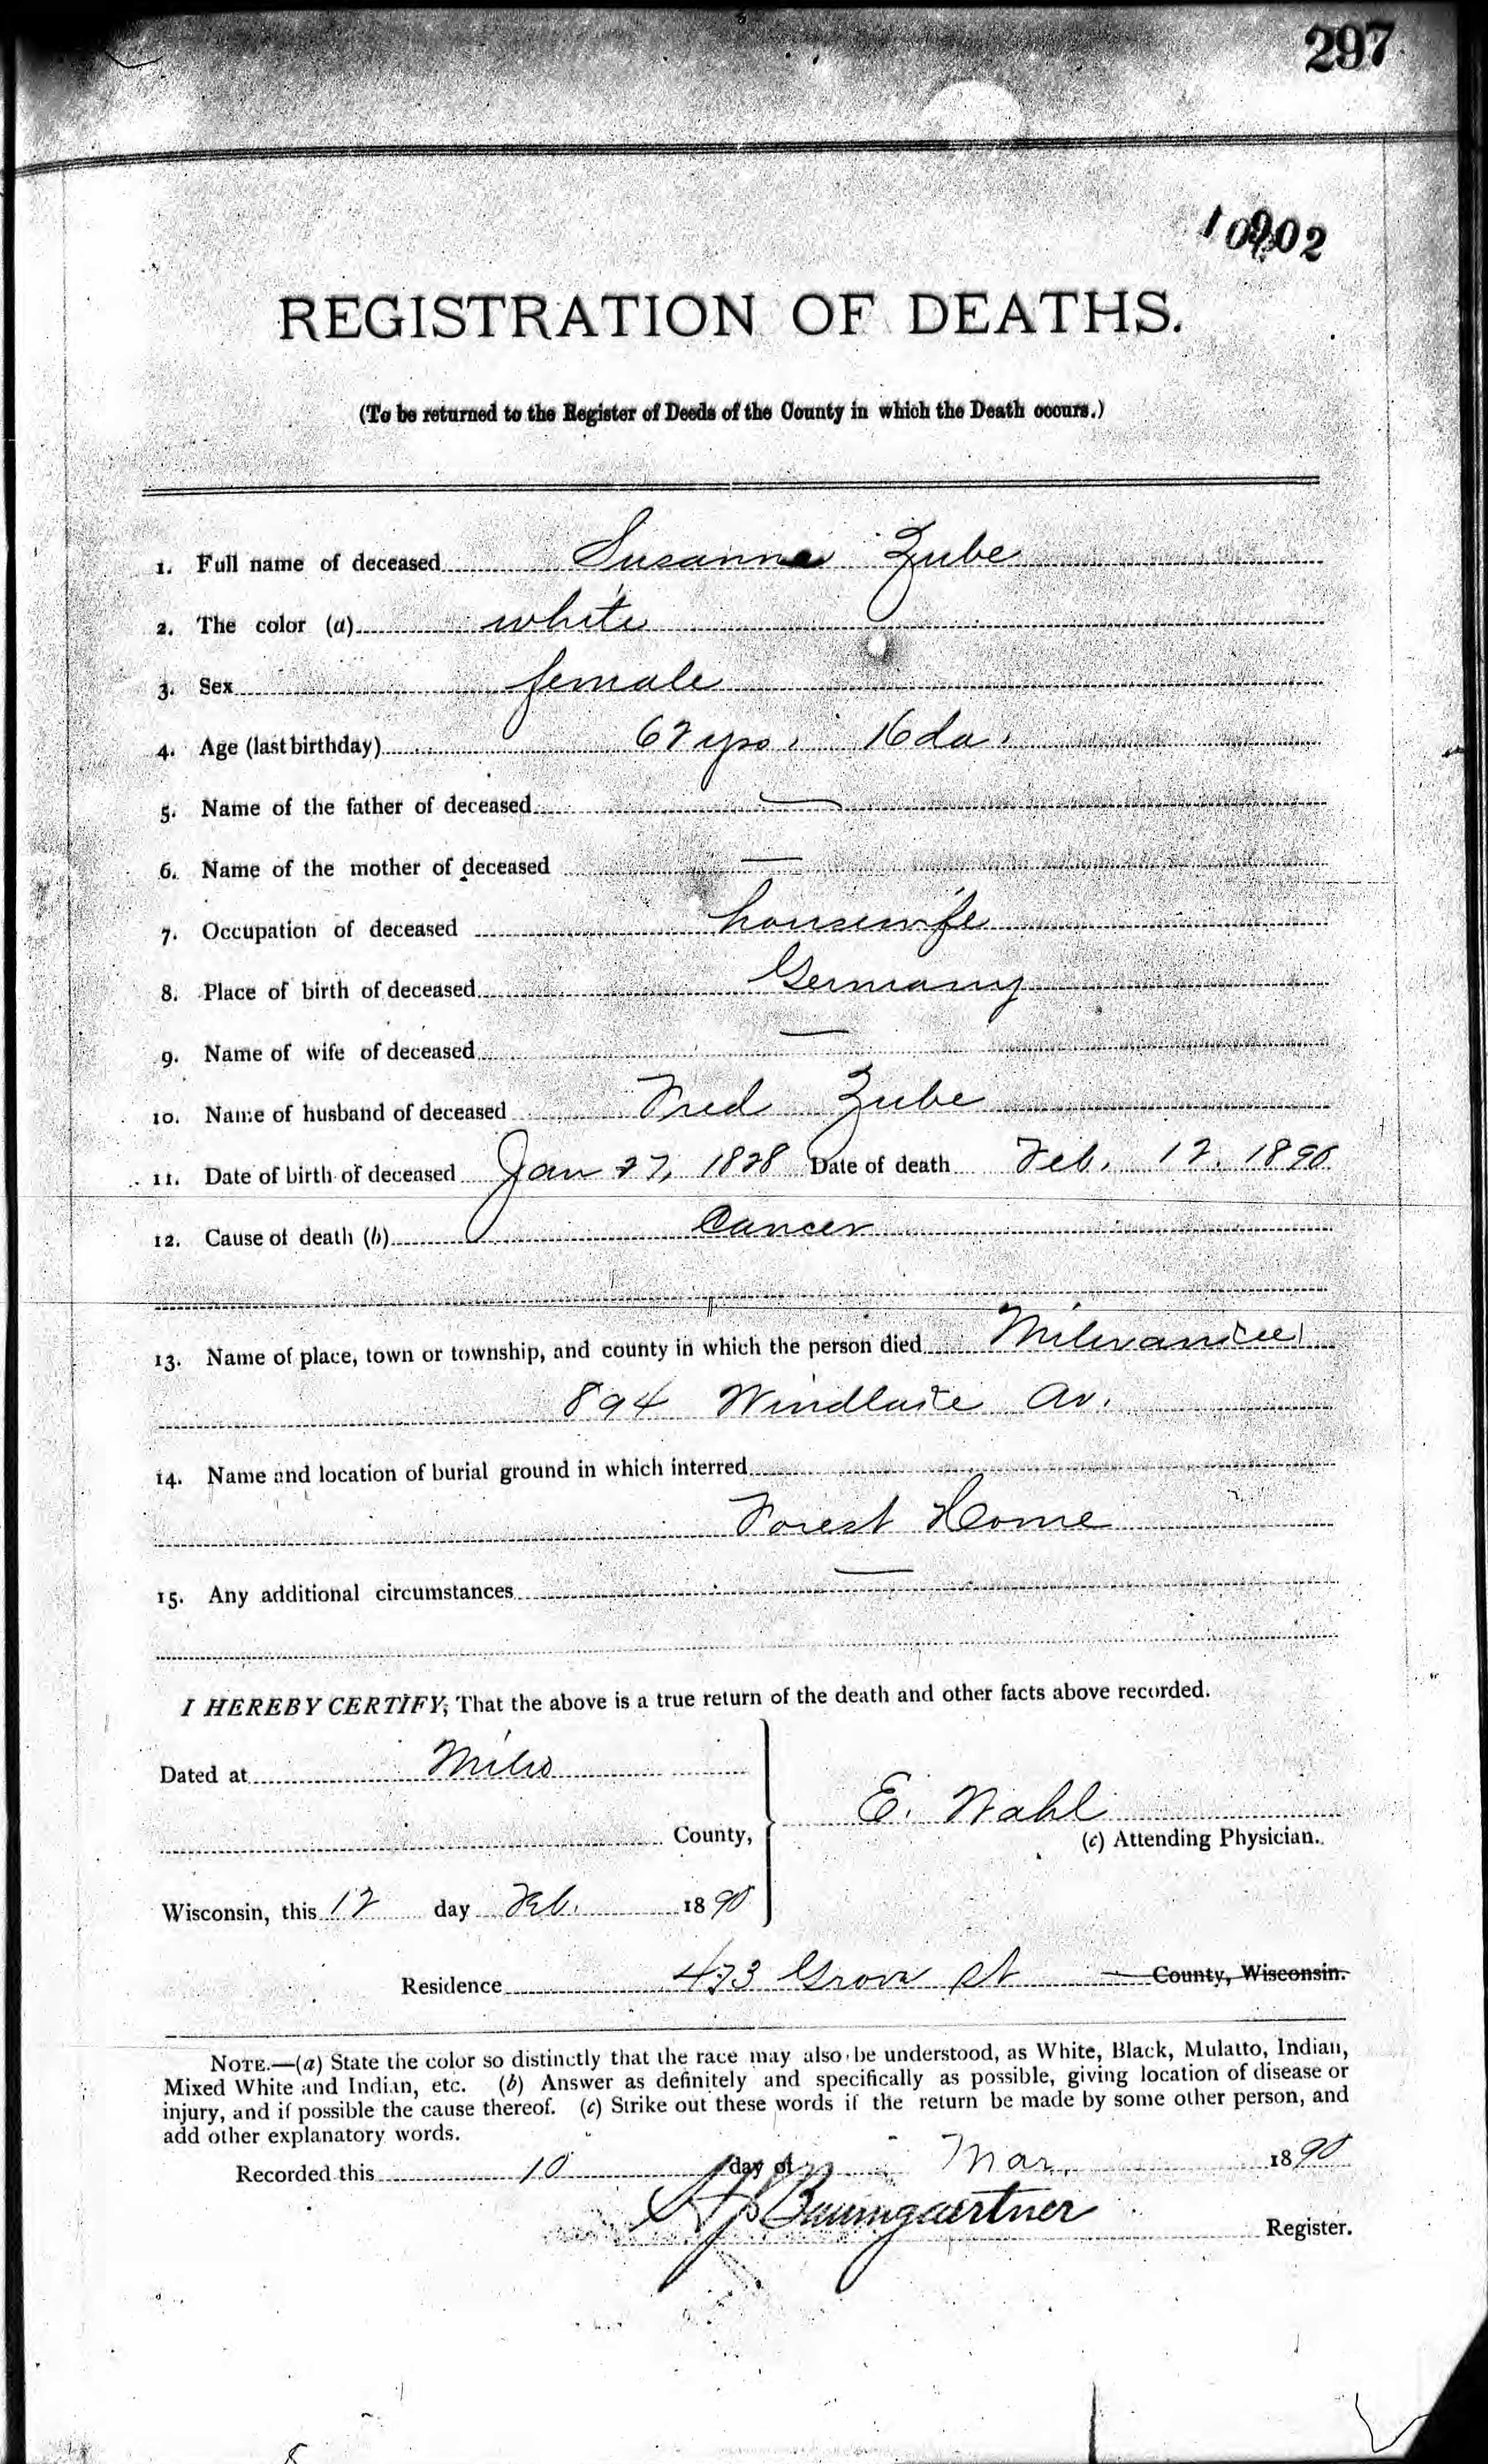 297
REGISTRATION OF DEATHS.
(To be returned to the Register of Deeds of the County in which the Death occurs.)
1. Full name of deceased Susanna Zube
2. The color (a) white
3. Sex female
4. Age (last birthday) 62 yrs. 16 da.
5. Name of the father of deceased —
6. Name of the mother of deceased —
7. Occupation of deceased housewife
8. Place of birth of deceased Germany
9. Name of wife of deceased —
10. Name of husband of deceased Fred Zube
11. Date of birth of deceased Jan 27, 1828 Date of death Feb. 12. 1890
12. Cause of death (b) Cancer
13. Name of place, town or township, and county in which the person died Milwaukee
894 Windlake Av.
14. Name and location of burial ground in which interred
Forest Home
15. Any additional circumstances —
I HEREBY CERTIFY, That the above is a true return of the death and other facts above recorded.
Dated at Milw
County,
E. Wahl
(c) Attending Physician.
Wisconsin, this 12 day Feb. 1890
Residence 473 Grove St County, Wisconsin.
NOTE.—(a) State the color so distinctly that the race may also be understood, as White, Black, Mulatto, Indian,
Mixed White and Indian, etc. (b) Answer as definitely and specifically as possible, giving location of disease or
injury, and if possible the cause thereof. (c) Strike out these words if the return be made by some other person, and
add other explanatory words.
Recorded this 10 day of Mar. 1890
Baumgaertner
Register.